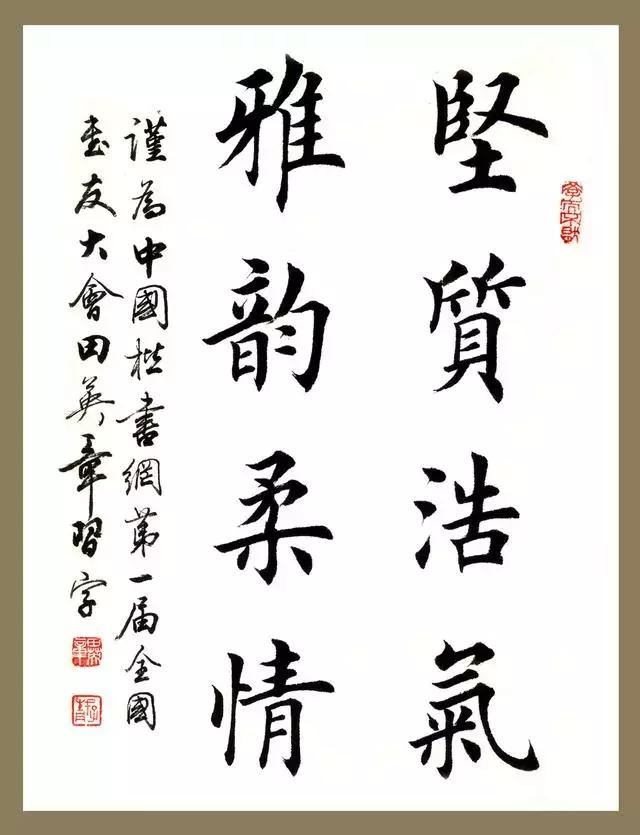 堅質浩氣
雅韵柔情
謹為中國楷書網第一届全國
书友大會田英章習字